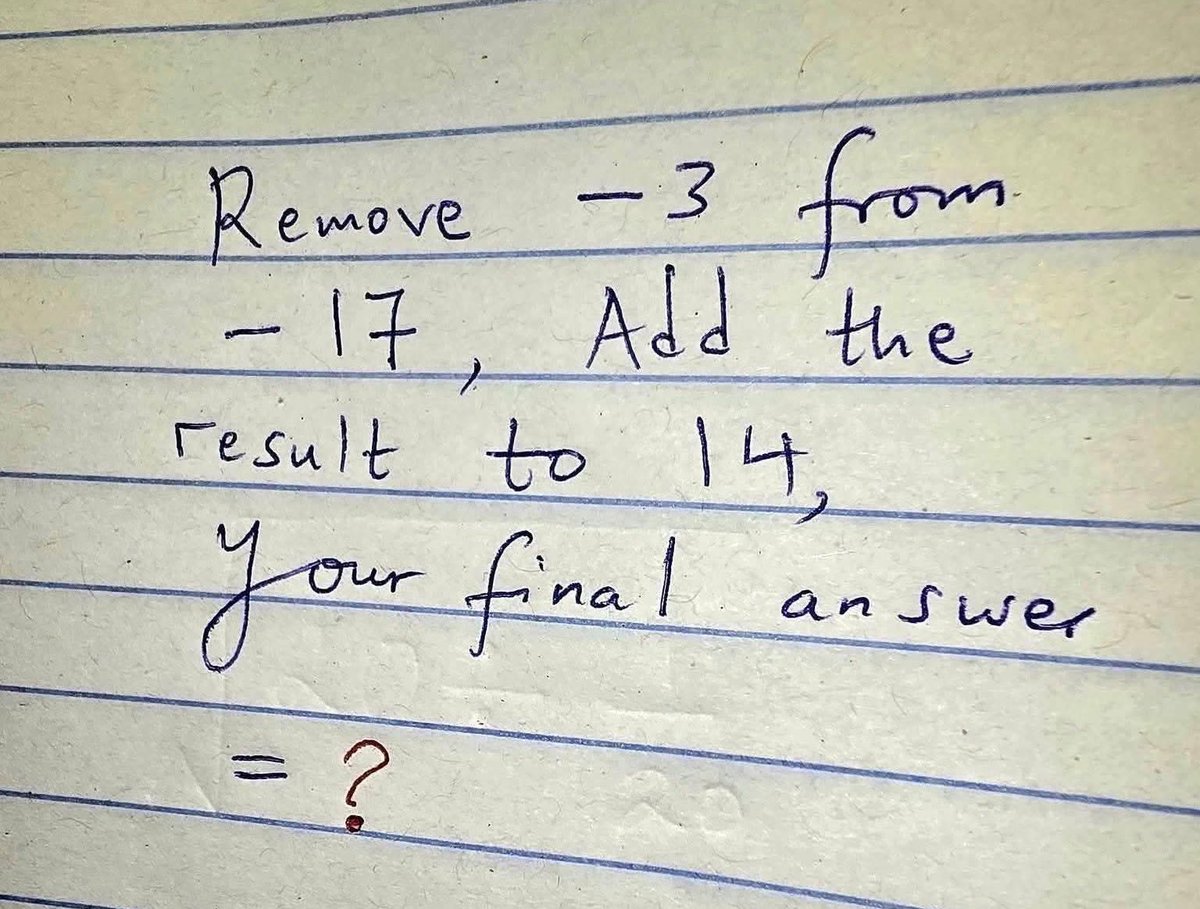 Remove -3 from
-17, Add the
result to 14,
Your final answer
= ?